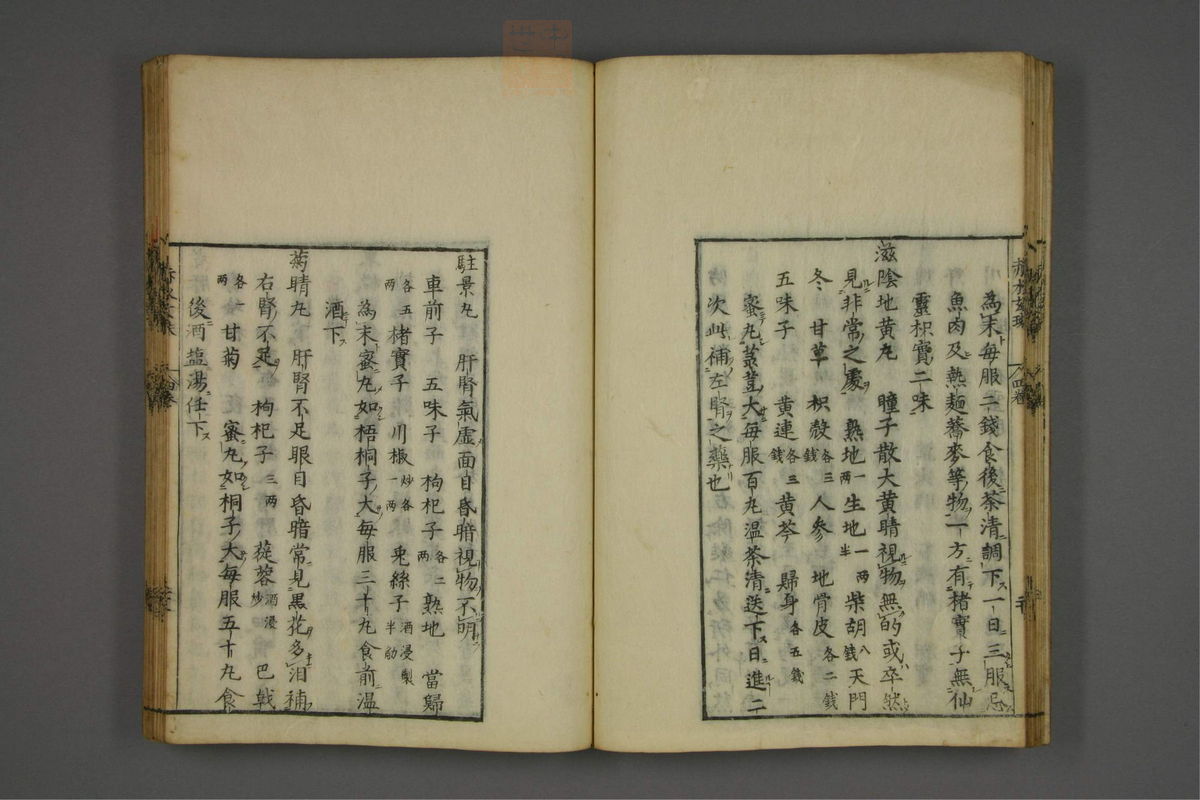 為末每服二錢食後茶清調下一日三服忌
魚肉及熱麵蕎麥等物一方有楮實子無仙
靈枳實二味
滋陰地黄丸 瞳子散大黄睛視物無的或卒然
見非常之處 熟地一両生地一両半柴胡八錢天門
冬 甘草 枳殻各三錢人參 地骨皮各二錢
五味子 黄連各三錢黄芩 歸身各五錢
蜜丸菉荳大每服百丸温茶清送下日進二
次此補左腎之藥也
駐景丸 肝腎氣虚面目昏暗視物不明
車前子 五味子 枸杞子各二両熟地 當歸
各五両楮實子 川椒炒各一両兎絲子酒浸製半觔
為末蜜丸如梧桐子大每服三十丸食前温
酒下
菊睛丸 肝腎不足眼目昏暗常見黒花多泪補
右腎不足 枸杞子三両 蓯蓉酒浸炒 巴戟
各一両甘菊 蜜丸如桐子大每服五十丸食
後酒塩湯任下